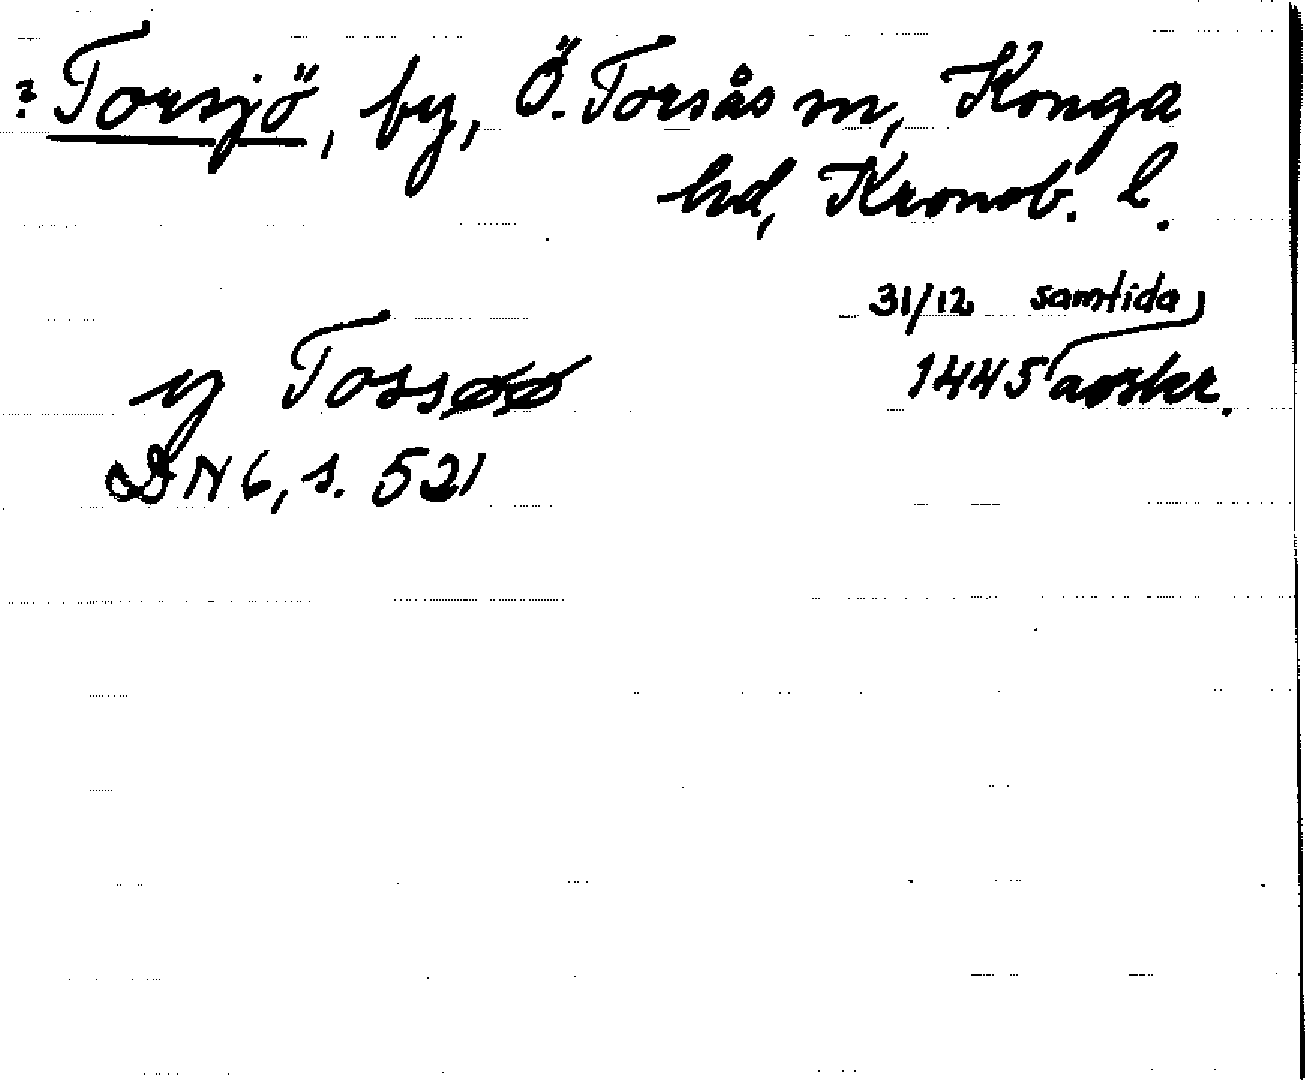 ? Torsjö, by, Ö. Torsås sn, Konga
hd, Kronob. l.
31/12 samtida
y Tossøø 1445 avskr.
DN 6, s. 521